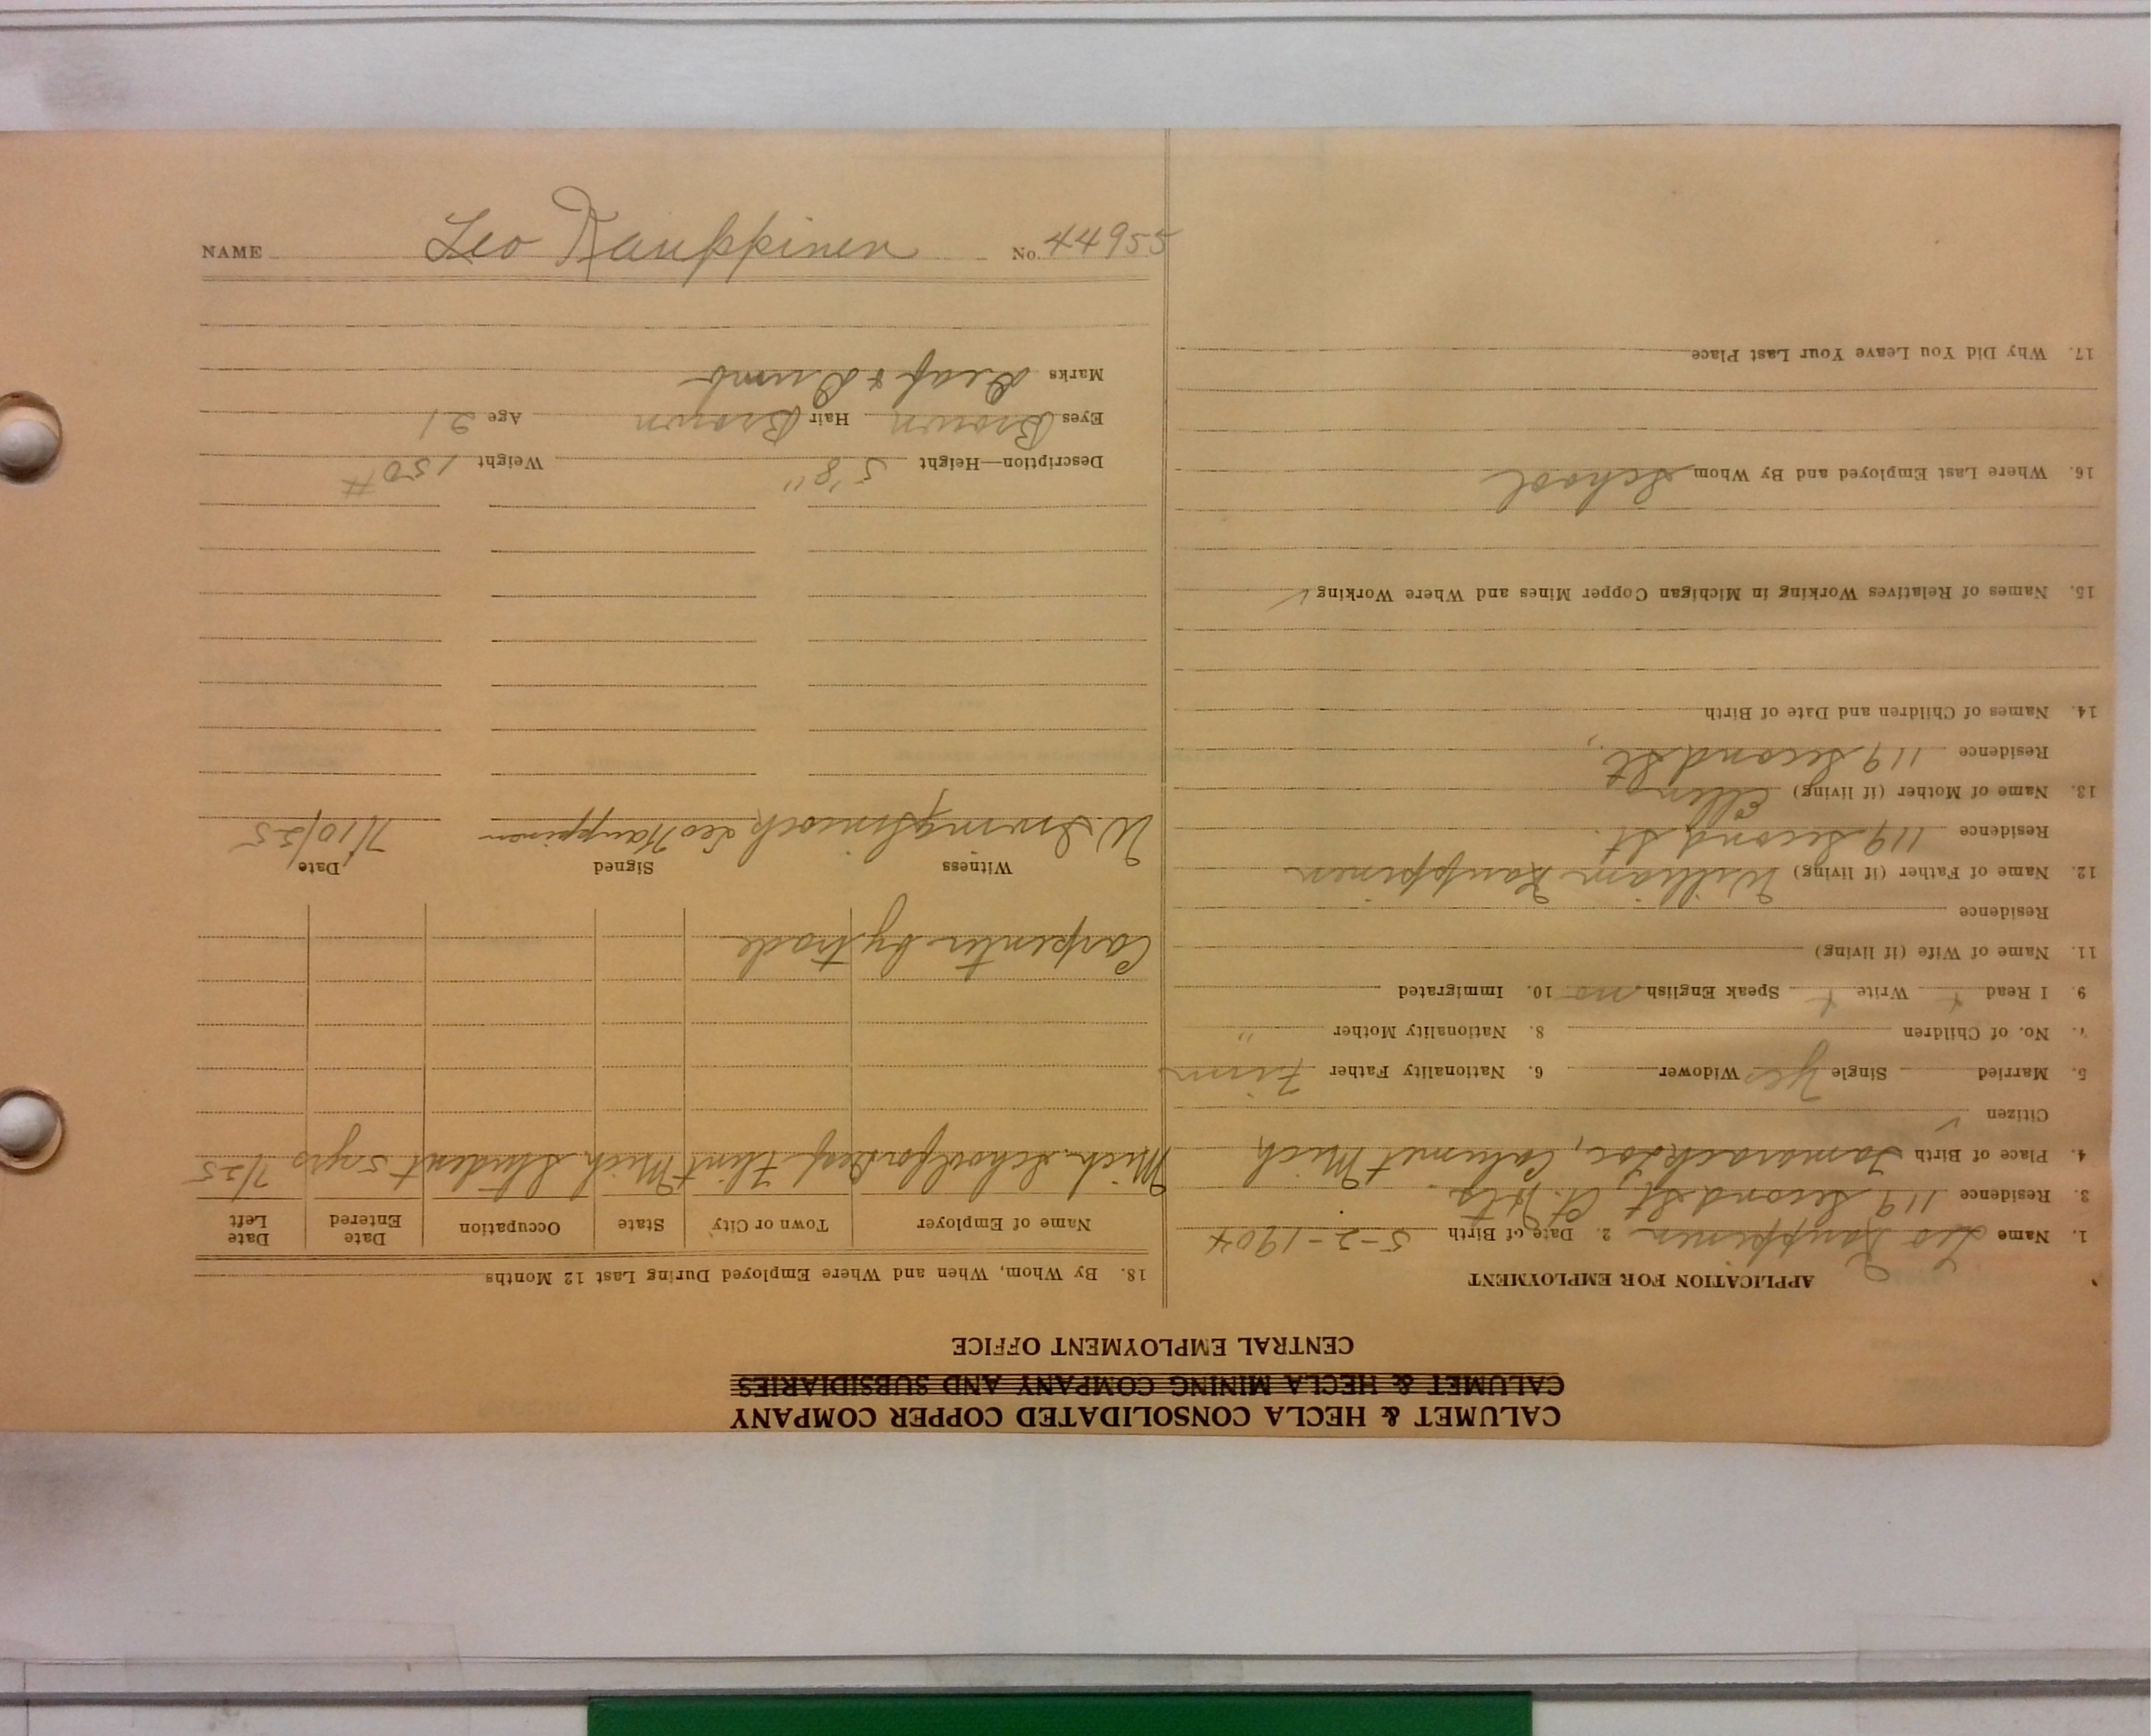 CALUMET & HECLA CONSOLIDATED COPPER COMPANY
CALUMET & HECLA MINING COMPANY AND SUBSIDIARIES
CENTRAL EMPLOYMENT OFFICE
APPLICATION FOR EMPLOYMENT
1. Name Leo Kauppinen 2. Date of Birth 5-2-1904
3. Residence 119 Second St, Ct. Hts.
4. Place of Birth Tamarack Loc, Calumet Mich
Citizen ✓
5. Married Single Yes Widower 6. Nationality Father Finn
7. No. of Children 8. Nationality Mother "
9. I Read + Write + Speak English no 10. Immigrated
11. Name of Wife (if living)
Residence
12. Name of Father (if living) William Kauppinen
Residence 119 Second St.
13. Name of Mother (if living) Ellen
Residence 119 Second St.,
14. Names of Children and Date of Birth
15. Names of Relatives Working in Michigan Copper Mines and Where Working ✓
16. Where Last Employed and By Whom School
17. Why Did You Leave Your Last Place
18. By Whom, When and Where Employed During Last 12 Months
Name of Employer Town or City State Occupation Date Entered Date Left
Mich. School for Deaf Flint Mich Student 5 yrs 7/25
Carpenter by trade
Witness Signed Date
W. Leo Kauppinen 7/10/25
Description—Height 5'8" Weight 150#
Eyes Brown Hair Brown Age 21
Marks Deaf & Dumb
NAME Leo Kauppinen No. 44955